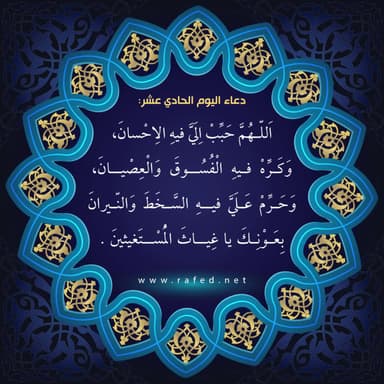 دعاء اليوم الحادي عشر:
اَللّـهُمَّ حَبِّبْ اِلَيَّ فيهِ الاِْحْسانَ،
وَكَرِّهْ فـيهِ الْفُسُـوقَ وَالْعِصْيـانَ،
وَحَرِّمْ عَلَيَّ فيـهِ السَّـخَطَ وَالنّـيرانَ
بِعَـوْنِـكَ يا غِيـاثَ الْمُسْـتَغيثينَ .
www.rafed.net